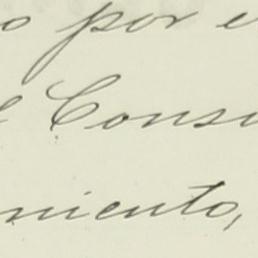 o por e
Consu
miento,